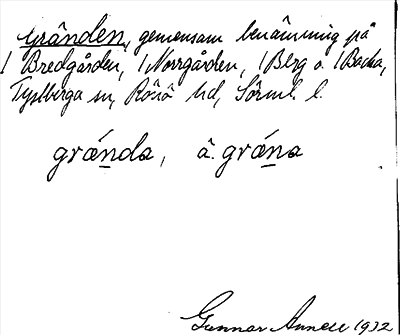 Gränden, gemensam benämning på
/ Bredgården, / Norrgården, / Berg o. / Backa,
Tystberga sn, Rönö hd, Sörml. l.
grända, å gräna
Gunnar 1932